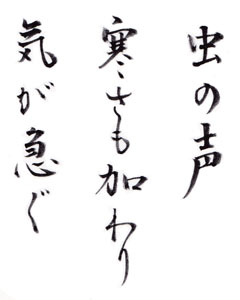 虫の声
寒さも加わり
気が急ぐ